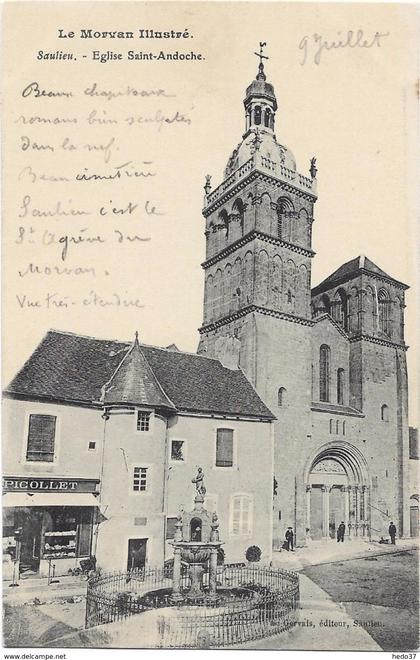 Le Morvan Illustré.
Saulieu. - Eglise Saint-Andoche.
9 Juillet
Beaux chapiteaux
romans bien sculptés
dans la nef.
Beau cimetière
Saulieu c'est le
St Agrève du
Morvan.
Vue très étendue
PICOLLET
Gervais, éditeur, Saulieu.
hedo37